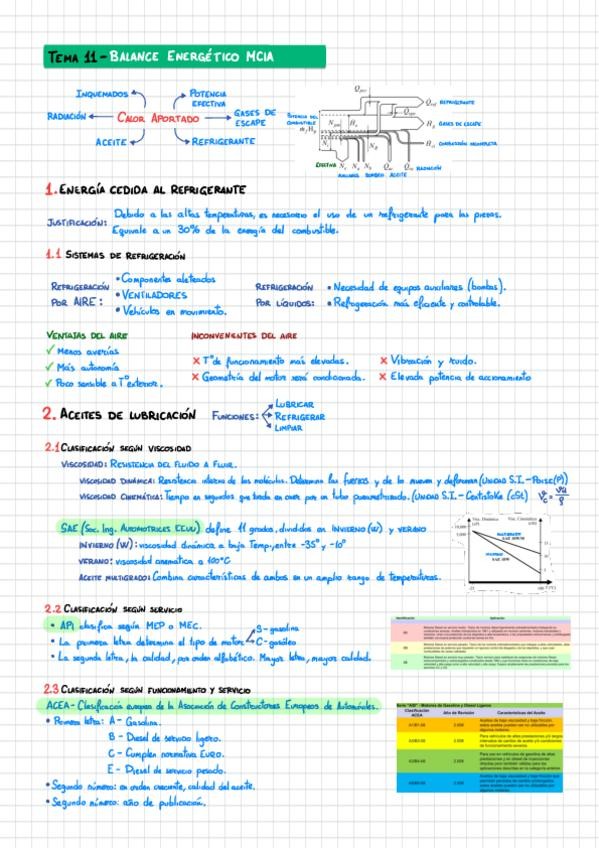 TEMA 11 - BALANCE ENERGÉTICO MCIA
INQUEMADOS
POTENCIA EFECTIVA
RADIACIÓN
CALOR APORTADO
GASES DE ESCAPE
ACEITE
REFRIGERANTE
POTENCIA DEL COMBUSTIBLE
REFRIGERANTE
GASES DE ESCAPE
COMBUSTIÓN INCOMPLETA
EFECTIVA
AUXILIARES BOMBEO ACEITE
RADIACIÓN
1. ENERGÍA CEDIDA AL REFRIGERANTE
JUSTIFICACIÓN: Debido a las altas temperaturas, es necesario el uso de un refrigerante para las piezas.
Equivale a un 30% de la energía del combustible.
1.1 SISTEMAS DE REFRIGERACIÓN
REFRIGERACIÓN POR AIRE:
• Componentes aleteados
• VENTILADORES
• Vehículos en movimiento.
REFRIGERACIÓN POR LÍQUIDOS:
• Necesidad de equipos auxiliares (bombas).
• Refrigeración más eficiente y controlable.
VENTAJAS DEL AIRE
✓ Menos averías
✓ Más autonomía
✓ Poco sensible a Tº exterior.
INCONVENIENTES DEL AIRE
✗ Tº de funcionamiento más elevadas.
✗ Geometría del motor será condicionada.
✗ Vibración y ruido.
✗ Elevada potencia de accionamiento
2. ACEITES DE LUBRICACIÓN
FUNCIONES:
LUBRICAR
REFRIGERAR
LIMPIAR
2.1 CLASIFICACIÓN SEGÚN VISCOSIDAD
VISCOSIDAD: RESISTENCIA DEL FLUIDO A FLUIR.
VISCOSIDAD DINÁMICA: Resistencia interna de las moléculas. Determina las fuerzas y de lo mueven y deforman (UNIDAD S.I. - POISE (P))
VISCOSIDAD CINEMÁTICA: Tiempo en segundos que tarda en caer por un tubo parametrizado. (UNIDAD S.I. - Centistoke (cSt)
SAE (Soc. Ing. AUTOMOTRICES EEUU) define 11 grados, divididos en INVIERNO (W) y VERANO
INVIERNO (W): viscosidad dinámica a baja Temp, entre -35º y -10º
VERANO: viscosidad cinematica a 100ºC
ACEITE MULTIGRADO: Combina características de ambos en un amplio rango de temperaturas.
Visc. Dinámica
Visc. Cinemática
2.2 CLASIFICACIÓN SEGÚN SERVICIO
• API clasifica según MEP o MEC.
• La primera letra determina el tipo de motor
S - gasolina
C - gasóleo
• La segunda letra, la calidad, por orden alfabético. Mayor letra, mayor calidad.
Identificación
Aplicación
2.3 CLASIFICACIÓN SEGÚN FUNCIONAMIENTO Y SERVICIO
ACEA - Clasificación europea de la Asociación de Constructores Europeos de Automóviles.
• Primera letra: A - Gasolina.
B - Diesel de servicio ligero.
C - Cumplen normativa EURO.
E - Diesel de servicio pesado.
• Segundo número: en orden creciente, calidad del aceite.
• Segundo número: año de publicación.
Clasificación ACEA
Año de Revisión
Características del Aceite